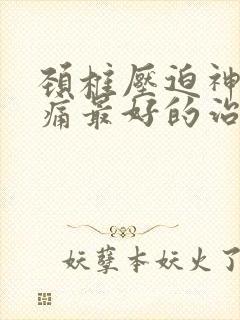 頚椎壓迫神
痛最好的治
妖孽本妖火了